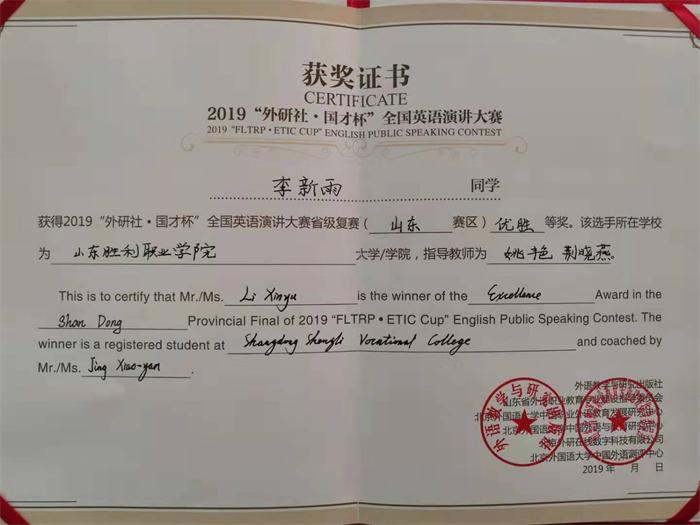 获奖证书
CERTIFICATE
2019“外研社·国才杯”全国英语演讲大赛
2019 "FLTRP·ETIC CUP" ENGLISH PUBLIC SPEAKING CONTEST
李新雨 同学
获得2019“外研社·国才杯”全国英语演讲大赛省级复赛（ 山东 赛区）优胜 等奖。该选手所在学校
为 山东胜利职业学院 大学/学院，指导教师为 姚艳 荆晓燕。
This is to certify that Mr./Ms. Li Xinyu is the winner of the Excellence Award in the
Shan Dong Provincial Final of 2019 "FLTRP·ETIC Cup" English Public Speaking Contest. The
winner is a registered student at Shangdong Shengli Vocational College and coached by
Mr./Ms. Jing Xiao-yan.
外语教学与研究出版社
山东省外语职业教育专业建设指导委员会
北京外国语大学中国职业外语教育发展研究中心
北京外国语大学中国外语与教育研究中心
外研在线数字科技有限公司
北京外国语大学中国外语测评中心
2019 年 月 日